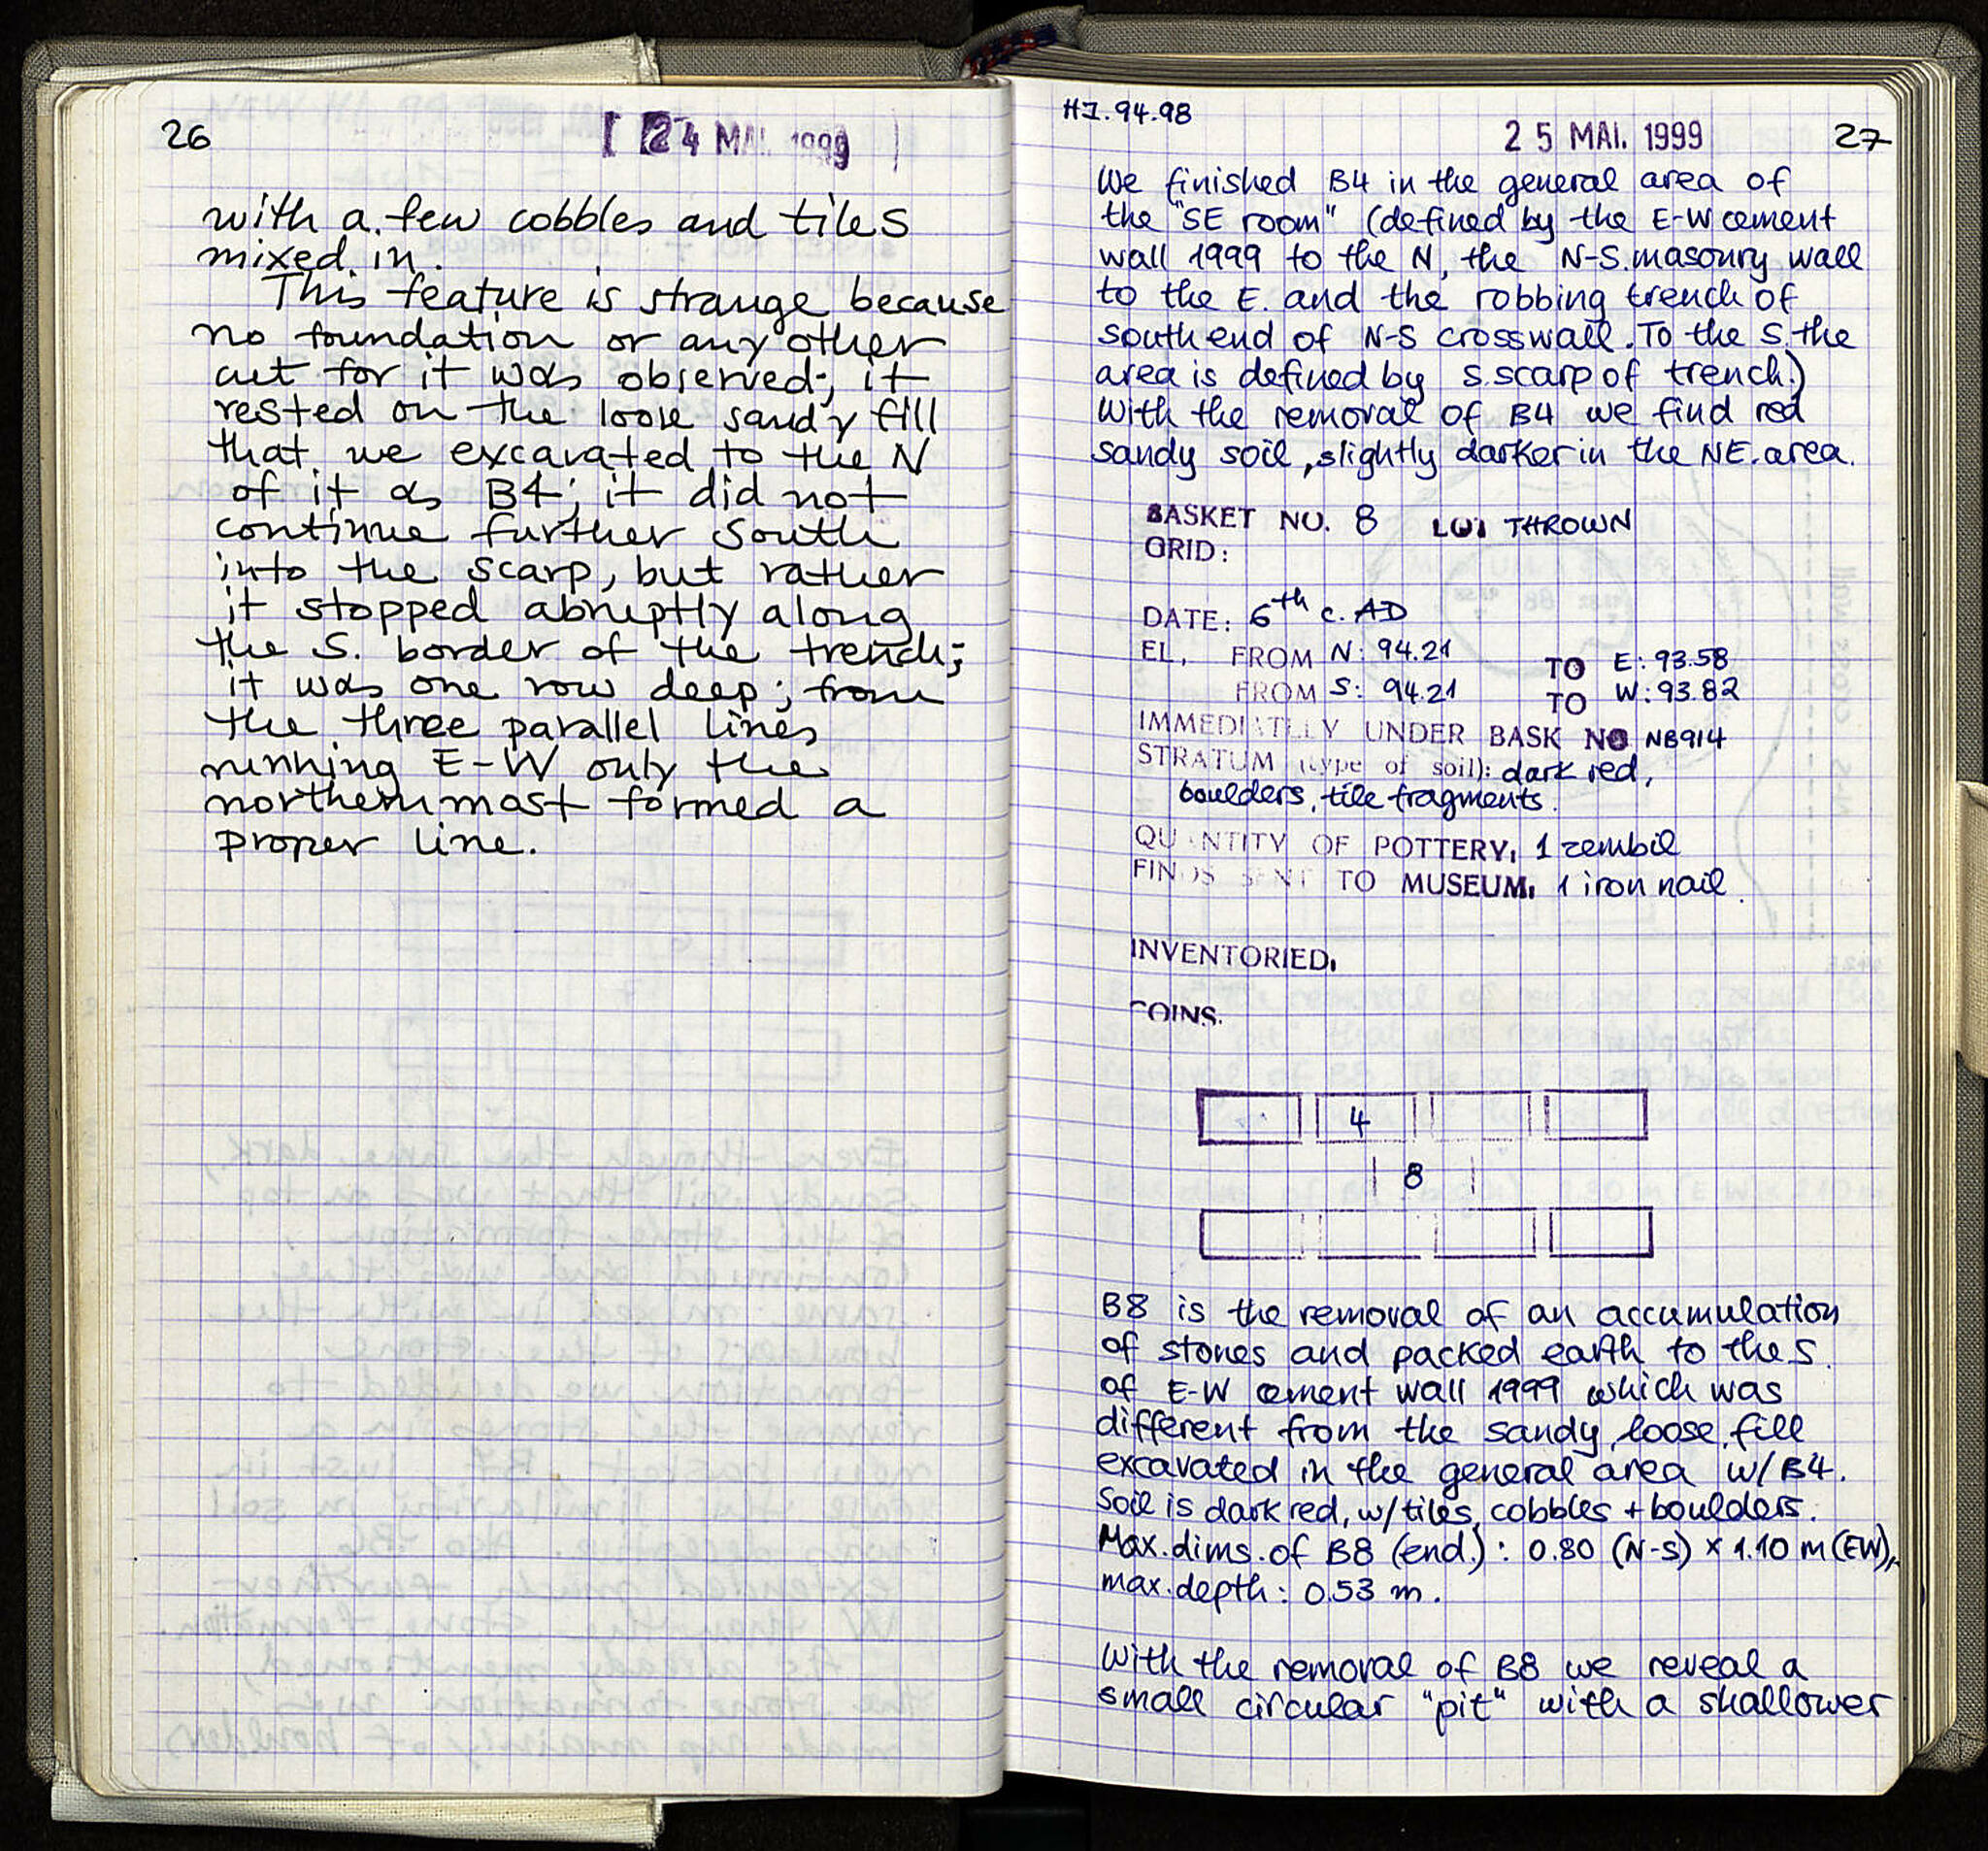 26
24 MAI 1999
with a few cobbles and tiles
mixed in.
This feature is strange because
no foundation or any other
cut for it was observed; it
rested on the loose sandy fill
that we excavated to the N
of it as B4; it did not
continue further South
into the scarp, but rather
it stopped abruptly along
the S. border of the trench;
it was one row deep; from
the three parallel lines
running E-W only the
northernmost formed a
proper line.
HJ.94.98
25 MAI. 1999 27
We finished B4 in the general area of
the "SE room" (defined by the E-W cement
wall 1999 to the N, the N-S masonry wall
to the E. and the robbing trench of
south end of N-S crosswall. To the S. the
area is defined by S. scarp of trench.)
With the removal of B4 we find red
sandy soil, slightly darker in the NE. area.
BASKET NO. 8 LOT THROWN
GRID:
DATE: 6th c. AD
EL. FROM N: 94.21 TO E: 93.58
FROM S: 94.21 TO W: 93.82
IMMEDIATLLY UNDER BASK NO NB914
STRATUM (type of soil): dark red,
boulders, tile fragments.
QUANTITY OF POTTERY: 1 zembil
FINDS SENT TO MUSEUM: 1 iron nail.
INVENTORIED:
COINS.
4
8
B8 is the removal of an accumulation
of stones and packed earth to the S.
of E-W cement wall 1999 which was
different from the sandy, loose, fill
excavated in the general area w/B4.
Soil is dark red, w/tiles, cobbles + boulders.
Max. dims. of B8 (end.): 0.80 (N-S) x 1.10 m (EW),
max. depth: 0.53 m.
With the removal of B8 we reveal a
small circular "pit" with a shallower